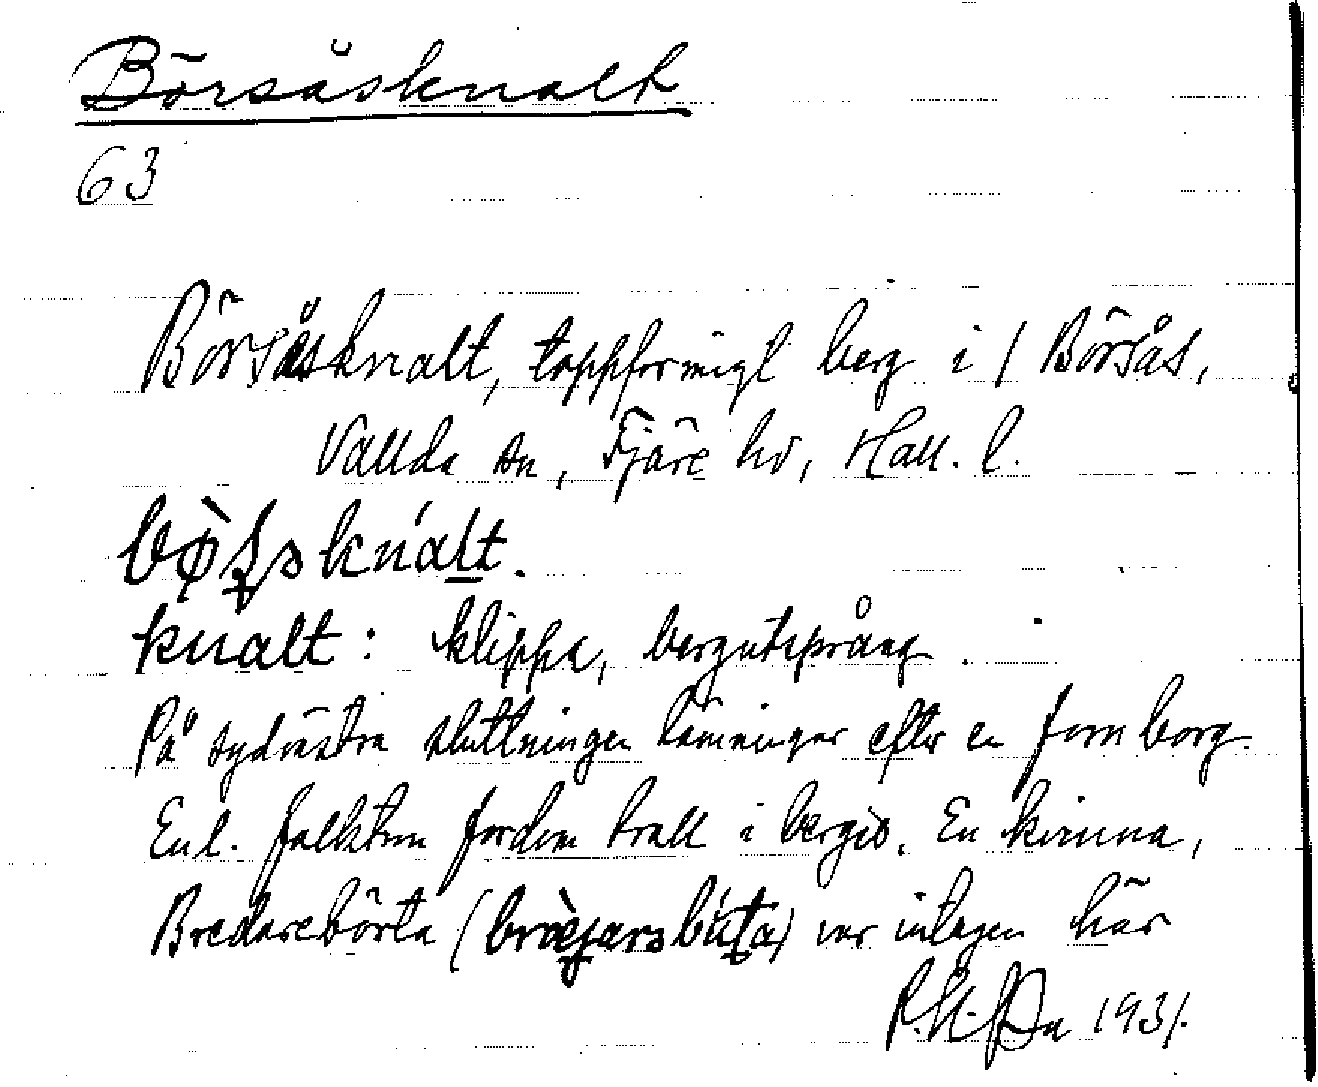 Börsåsknalt
63
Börsåsknalt, toppformigt berg i / Börsås,
Vallda sn, Fjäre hd, Hall. l.
knalt.
knalt: klippa, bergutsprång.
På sydvästra sluttningen lämningar efter en fornborg.
Enl. folktron fordom troll i berget. En kvinna,
Bredarebörta ( ) var intagen här
1931.